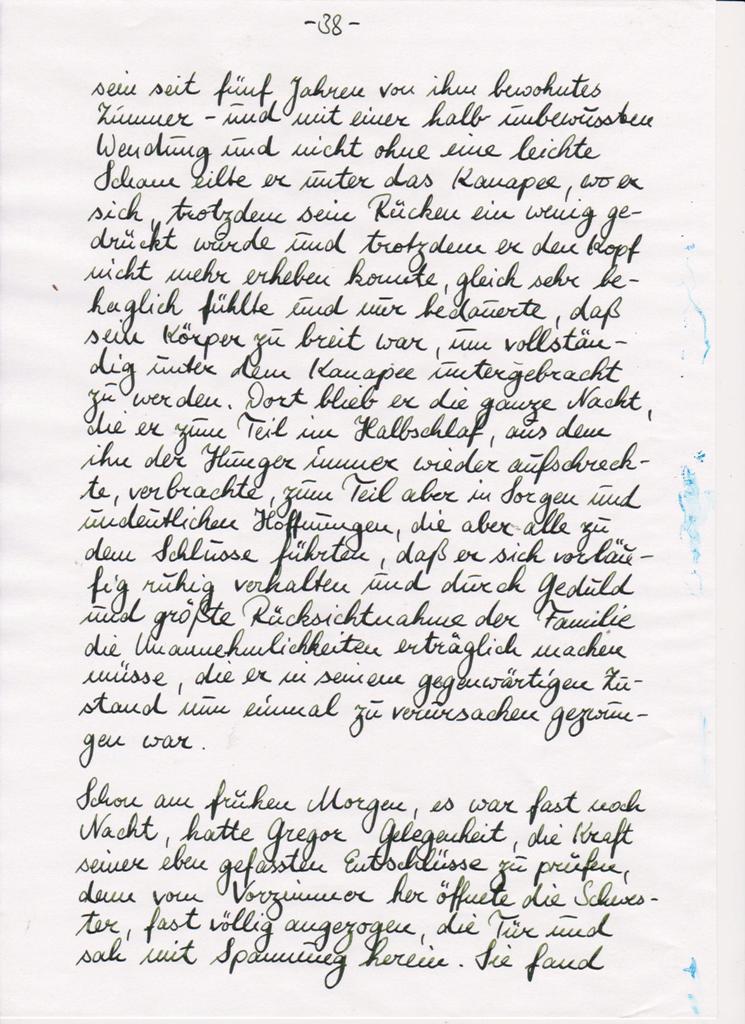 -38-
sein seit fünf Jahren von ihm bewohntes
Zimmer - und mit einer halb unbewussten
Wendung und nicht ohne eine leichte
Scham eilte er unter das Kanapee, wo er
sich, trotzdem sein Rücken ein wenig ge-
drückt wurde und trotzdem er den Kopf
nicht mehr erheben konnte, gleich sehr be-
haglich fühlte und nur bedauerte, daß
sein Körper zu breit war, um vollstän-
dig unter dem Kanapee untergebracht
zu werden. Dort blieb er die ganze Nacht,
die er zum Teil im Halbschlaf, aus dem
ihn der Hunger immer wieder aufschreck-
te, verbrachte, zum Teil aber in Sorgen und
undeutlichen Hoffnungen, die aber alle zu
dem Schlusse führten, daß er sich vorläu-
fig ruhig verhalten und durch Geduld
und größte Rücksichtnahme der Familie
die Unannehmlichkeiten erträglich machen
müsse, die er in seinem gegenwärtigen Zu-
stand nun einmal zu verursachen gezwun-
gen war.
Schon am frühen Morgen, es war fast noch
Nacht, hatte Gregor Gelegenheit, die Kraft
seiner eben gefassten Entschlüsse zu prüfen,
denn vom Vorzimmer her öffnete die Schwes-
ter, fast völlig angezogen, die Tür und
sah mit Spannung herein. Sie fand